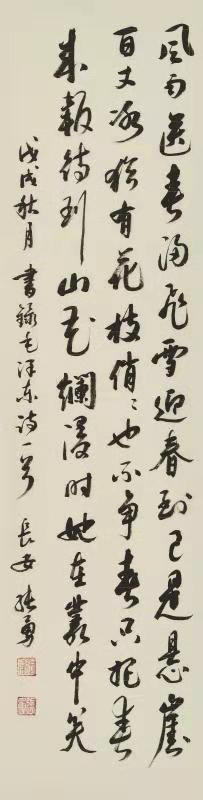 风雨送春歸飛雪迎春到已是懸崖
百丈冰猶有花枝俏〻也不争春只把春
来報待到山花爛漫时她在叢中笑
戊戌秋月 書録毛泽东诗一首 長安 張勇